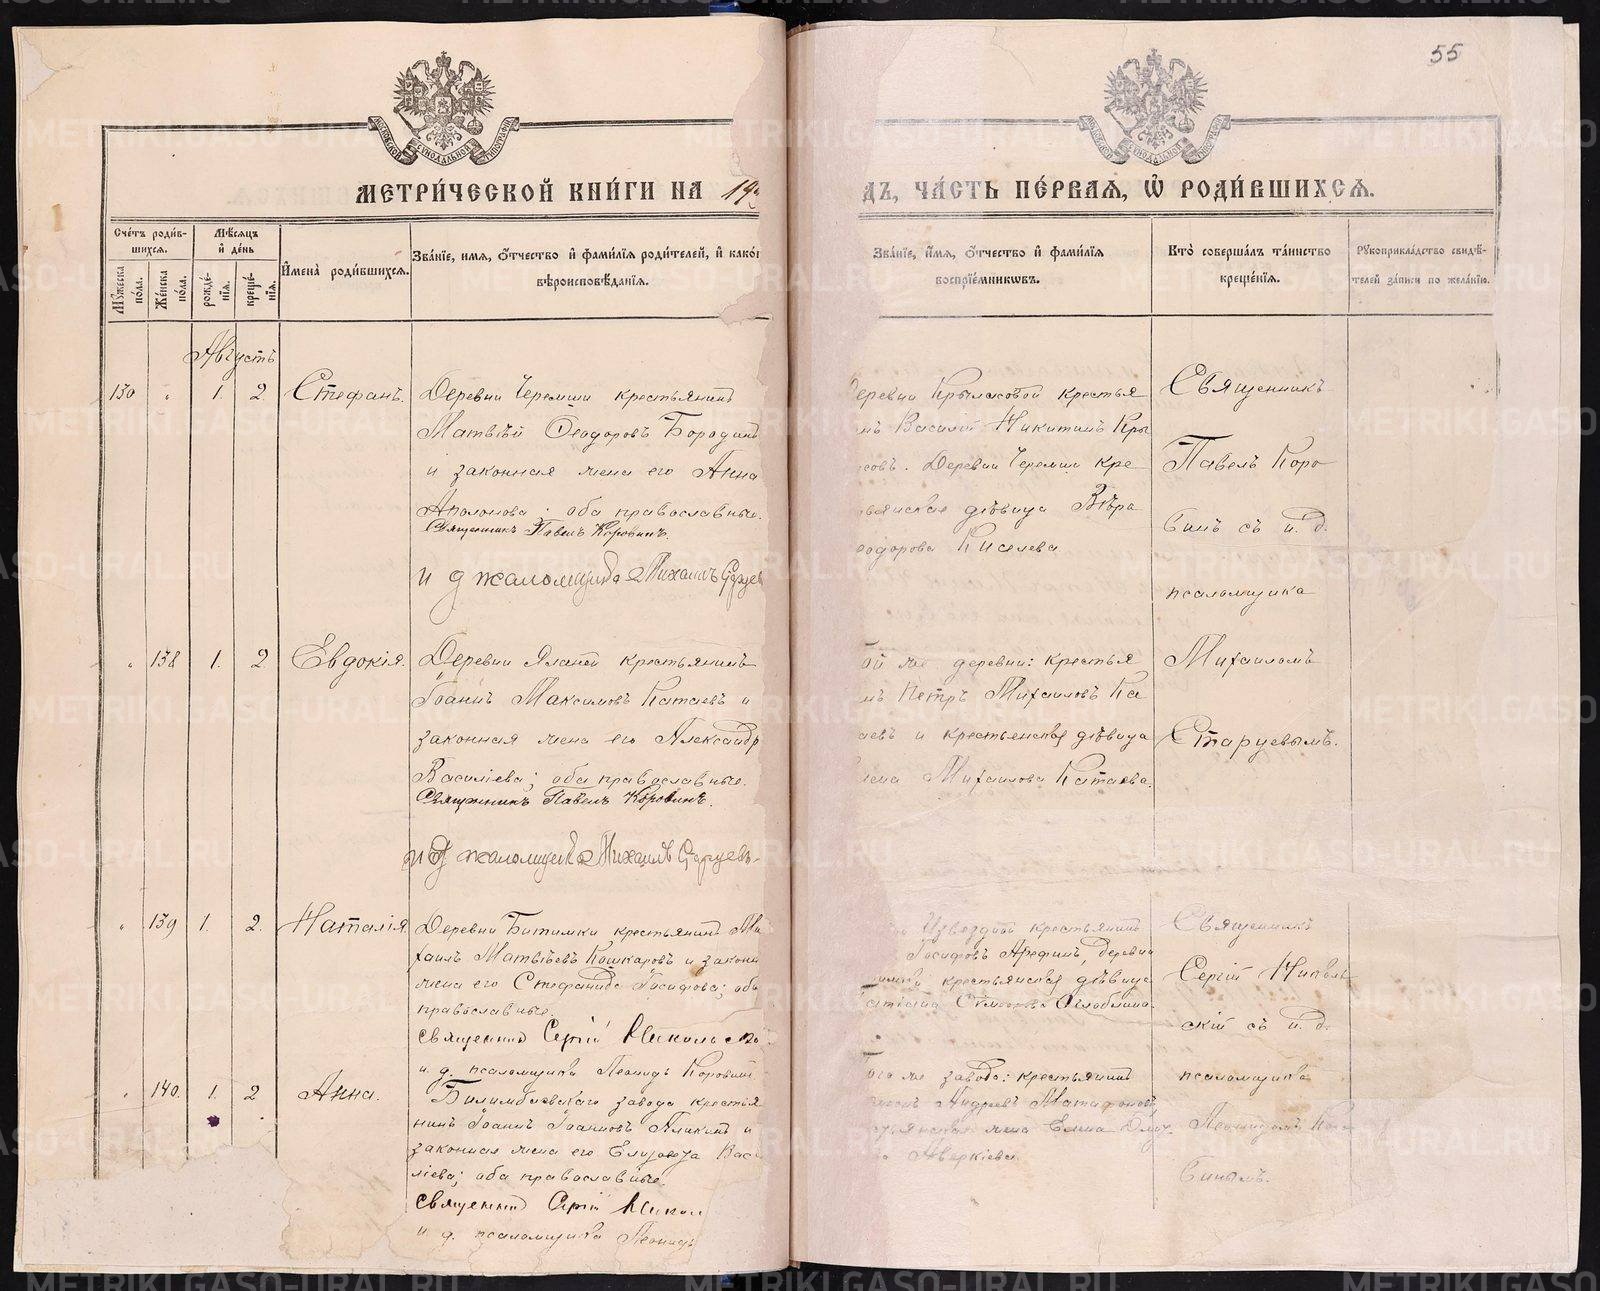 55
МЕТРИ́ЧЕСКОЙ КНИ́ГИ НА 19
ДЪ, ЧА́СТЬ ПЕ́РВАЯ, Ѡ҆ РОДИ́ВШИХСЯ.
Сче́тъ роди́в-
шихся.
Му́жеска по́ла.
Же́нска по́ла.
Мѣ́сяцъ
и҆ де́нь
рожде́-
нія.
креще́-
нія.
И҆мена̀ роди́вшихся.
Зва́ніе, и́мя, о҆́тчество и҆ фами́лія роди́телей, и҆ како́
вѣроисповѣ́данія.
Зва́ніе, и҆́мя, о҆́тчество и҆ фами́лія
воспріе́мниковъ.
Кто̀ соверша́лъ та́инство
креще́нія.
Рꙋкоприкла́дство свидѣ́-
телей за́писи по жела́нію.
Августъ
130 " 1. 2 Стефанъ.
Деревни Черемши крестьянинъ
Матвѣй Ѳеодоровъ Бородинъ
и законная жена его Анна
Аполонова; оба православные.
Священникъ Павелъ Коровинъ.
и д псаломщика Михаилъ Старцев
Деревни Крыласовой крестья
нъ Василій Никитинъ Кры
совъ. Деревни Черемши кре
ьянская дѣвица Вѣра
еодорова Киселева
Священникъ
Павелъ Коро
винъ съ и. д.
псаломщика
Михаиломъ
Старцевымъ.
" 138 1. 2 Евдокія.
Деревни Яланой крестьянинъ
Іоаннъ Максимовъ Катаевъ и
законная жена его Александр
Василіева; оба православные.
Священникъ Павелъ Коровинъ.
и д псаломщика Михаилъ Старцевъ
ой же деревни: крестья
нъ Петръ Михаиловъ Ка
аевъ и крестьянская дѣвица
Михаилова Катаева.
" 139 1. 2. Наталія
Деревни Битимки крестьянинъ Ми
хаилъ Матвѣевъ Кошкаровъ и законн
жена его Стефанида Іосифова; оба
православные.
священник Сергій Никольск
и. д. псаломщика Леонидъ Коровинъ
Извездной крестьянинъ
Іосифовъ Арефинъ, деревни
крестьянская дѣвица
Оглоблина.
Священникъ
Сергій Николь
скій съ и. д.
псаломщика
Леонидомъ Коро
винымъ.
" 140. 1. 2 Анна.
Билимбаевскаго завода крестья
нинъ Іоаннъ Іоанновъ Аликинъ и
законная жена его Елизавета Вас
ліева; оба православные.
священник Сергій Никол
и. д. псаломщика Леонидъ
ого же завода: крестьянинъ
Андреевъ Матафоновъ,
жена Елена
Аверкіева
METRIKI.GASO-URAL.RU